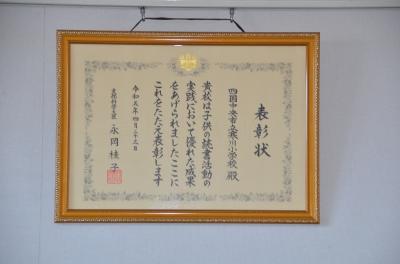 表彰状
四国中央市立寒川小学校 殿
貴校は子供の読書活動の
実践において優れた成果
をあげられましたここに
これをたたえ表彰します
令和五年四月二十三日
文部科学大臣 永岡桂子